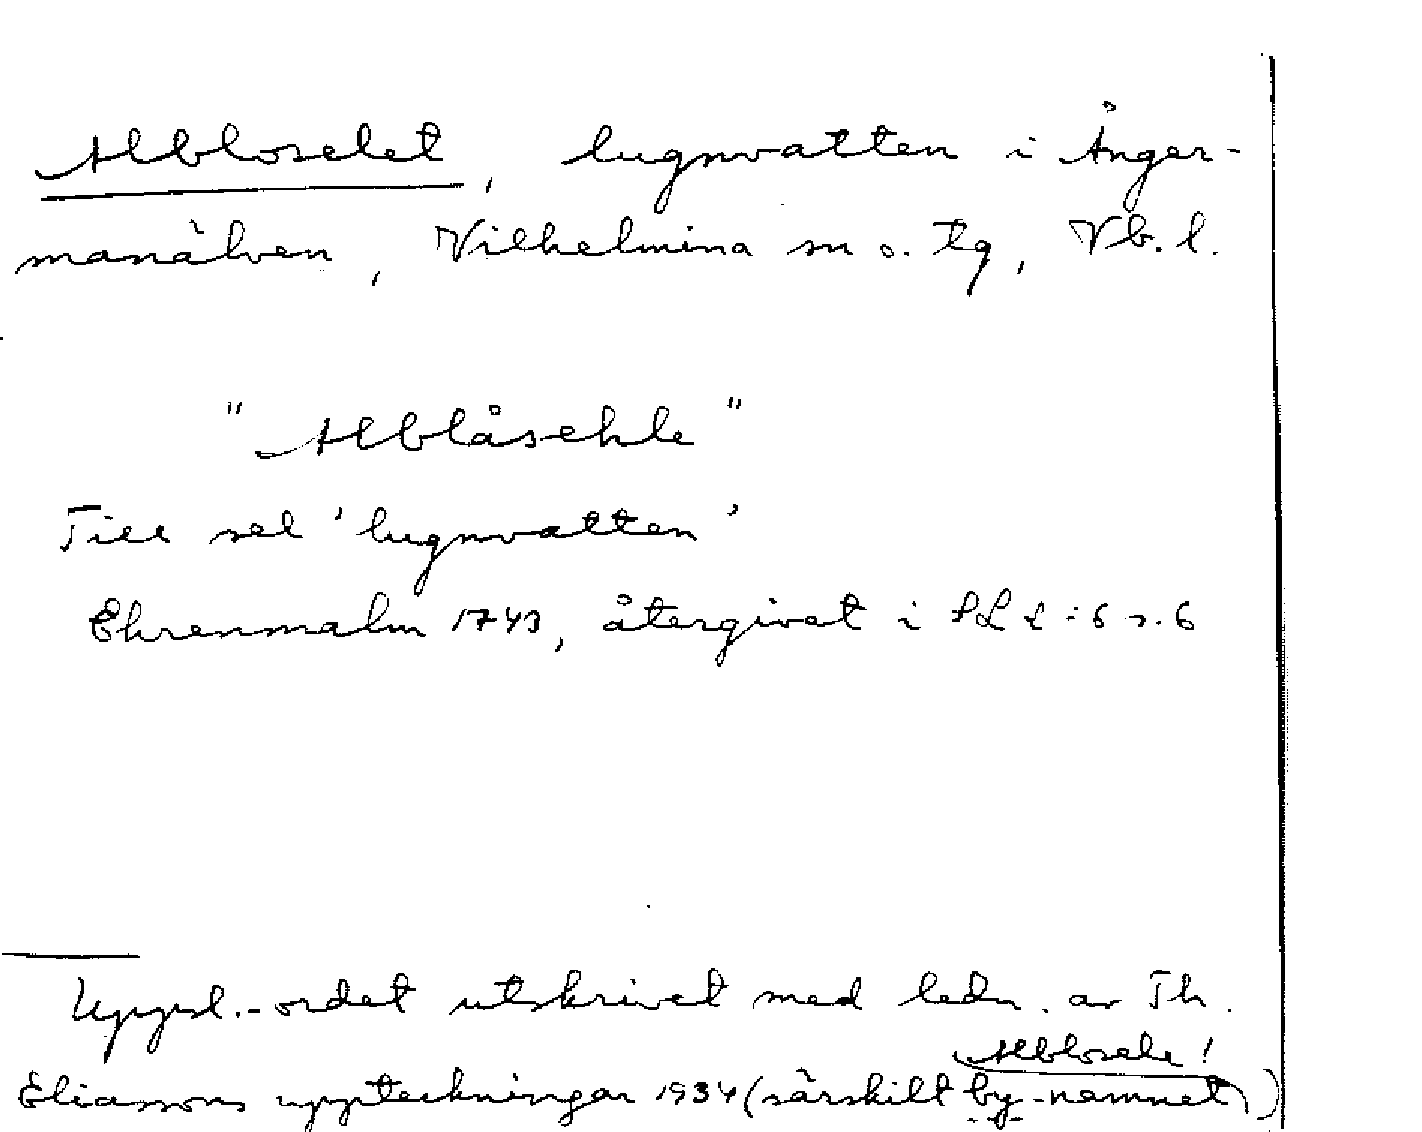 Albloselet, lugnvatten i Ånger-
manälven, Vilhelmina sn o. tg, Vb. l.
"Alblåsehle"
Till sel 'lugnvatten'
Ehrenmalm 1743, återgivet i s. 6
Uppsl.-ordet utskrivet med ledn. av Th.
Alblosele!
Eliassons uppteckningar 1934 (särskilt by-namnet)